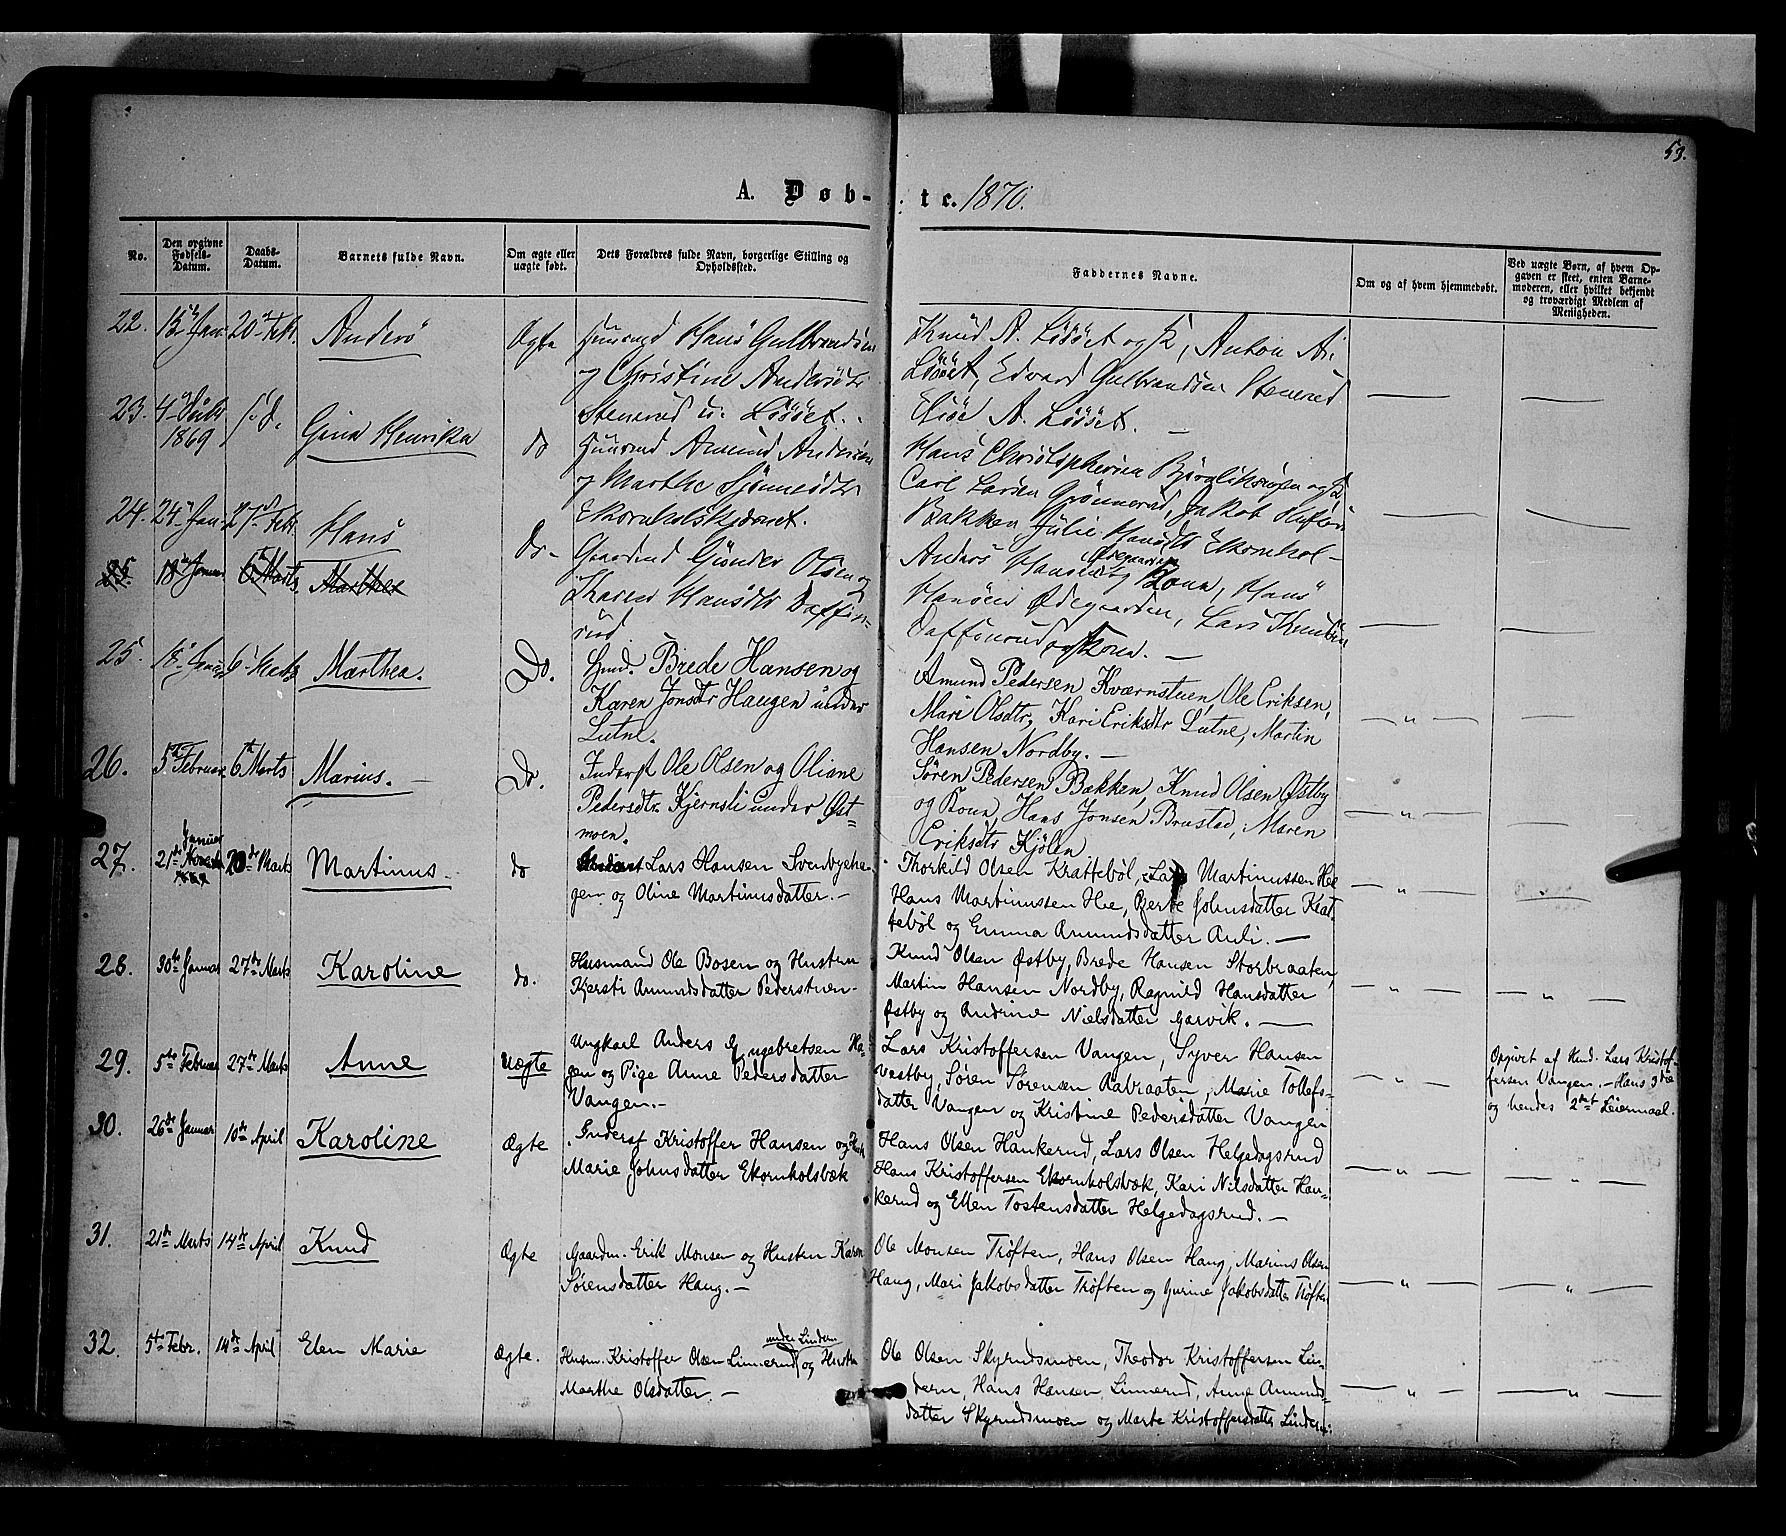 53.
A. Døb-
te. 1870.
No.
Den opgivne Fødsels-Datum.
Daabs-Datum.
Barnets fulde Navn.
Om ægte eller uægte født.
Dets Forældres fulde Navn, borgerlige Stilling og Opholdssted.
Faddernes Navne.
Om og af hvem hjemmedøbt.
Ved uægte Børn, af hvem Op-
gaven er skeet, enten Barne-
moderen, eller hvilket bekjendt
og troværdigt Medlem af
Menigheden.
22. Jan. 20 Febr. Anders
Ægte
Hans Gulbrandsen
og Christine Andersdtr
Stenerud u. Lösset.
Knud A. Lösset og K, Anton A.
Lösset, Edvard Gulbrandsen Stenerud
Elise A. Lösset. —
23. 1869 Gina Henrika
do
Amund Andersen
og Marthe
Ekornholskjæret.
Hans Christophersen
Carl Larsen Grönnerud, Jakob
Bakken Julie Hansdtr Ekornhol-
24. 24 Jan. 27 Febr. Hans
Do-
Gaardmd Gunder Olsen og
Karen Hansdtr Daffin-
rud
Anders Hansen Ödegaarden og Kona, Hans
Hansen Ödegaarden, Lars Knudsen
Daffinrud og Kona. —
25. 18 Januar 6 Marts Marthea
25. 18 Januar 6 Marts Marthea.
Do.
Hmd. Brede Hansen og
Karen Jonsdtr Haugen under
Lutne.
Amund Pedersen Kværnstuen, Ole Eriksen,
Mari Olsdtr, Kari Eriksdtr Lutne, Martin
Hansen Nordby. —
26. 5te Februar 6te Marts Marius. —
Do.
Inderst Ole Olsen og Oliane
Pedersdtr. Kjernsli under Øst-
moen.
Søren Pedersen Bakken, Knud Olsen Østby
og Kona, Hans Jonsen Brustad, Maren
Eriksdtr Kjölen
27. 21de Januar 1869 20de Marts Martinus.
do
Lars Hansen Svenbyeha-
gen og Oline Martinusdatter. —
Thorkild Olsen Kratteböl, Lars Martinussen Hee
Hans Martinussen Hee, Berte Johnsdatter Krat
teböl og Emma Amundsdatter Auli. —
28. 30te Januar 27de Marts Karoline
do.
Husmand Ole Bosen og Hustru
Kjersti Amundsdatter Pederstuen-
Knud Olsen Østby, Brede Hansen Storbraaten,
Martin Hansen Nordby, Ragnild Hansdatter
Østby og Andrine Nielsdatter Garvik. —
29. 5te Februar 27de Marts Anne
uægte
Ungkarl Anders Engebretsen Ha-
gen og Pige Anne Pedersdatter
Vangen. —
Lars Kristoffersen Vangen, Syver Hansen
Vestby, Søren Sørensen Aabraaten, Marie Tollefs-
datter Vangen og Kristine Pedersdatter Vangen
Opgivet af Hmd. Lars Kristof-
fersen Vangen. — Hans 3die
og hendes 2det Leiermaal.
30. 26de Januar 10de April Karoline
Ægte
Inderst Kristoffer Hansen og Hustru
Marie Johnsdatter Ekornholsbæk
Hans Olsen Hankerud, Lars Olsen Helgedagsrud
Hans Kristoffersen Ekornholsbæk, Kari Nilsdatter Han-
kerud og Ellen Tostensdatter Helgedagsrud. —
31. 21de Marts 14de April Knud
Ægte
Gaardm. Erik Monsen og Hustru Karen
Sørensdatter Haug. —
Ole Monsen Trøften, Hans Olsen Haug, Marius Olsen
Haug, Mari Jakobsdatter Trøften og Gurine Jakobsdatter Trøften
32. 5te Febr. 14de April Elen Marie
Ægte.
Husm. Kristoffer Olsen Linnerud under Lindern og Hustru
Marthe Olsdatter. —
Ole Olsen Skyrudsmoen, Theodor Kristoffersen Lin-
dern, Hans Hansen, Linnerud, Anne Amunds-
datter Skyrudsmoen og Marte Kristoffersdatter Lindern.